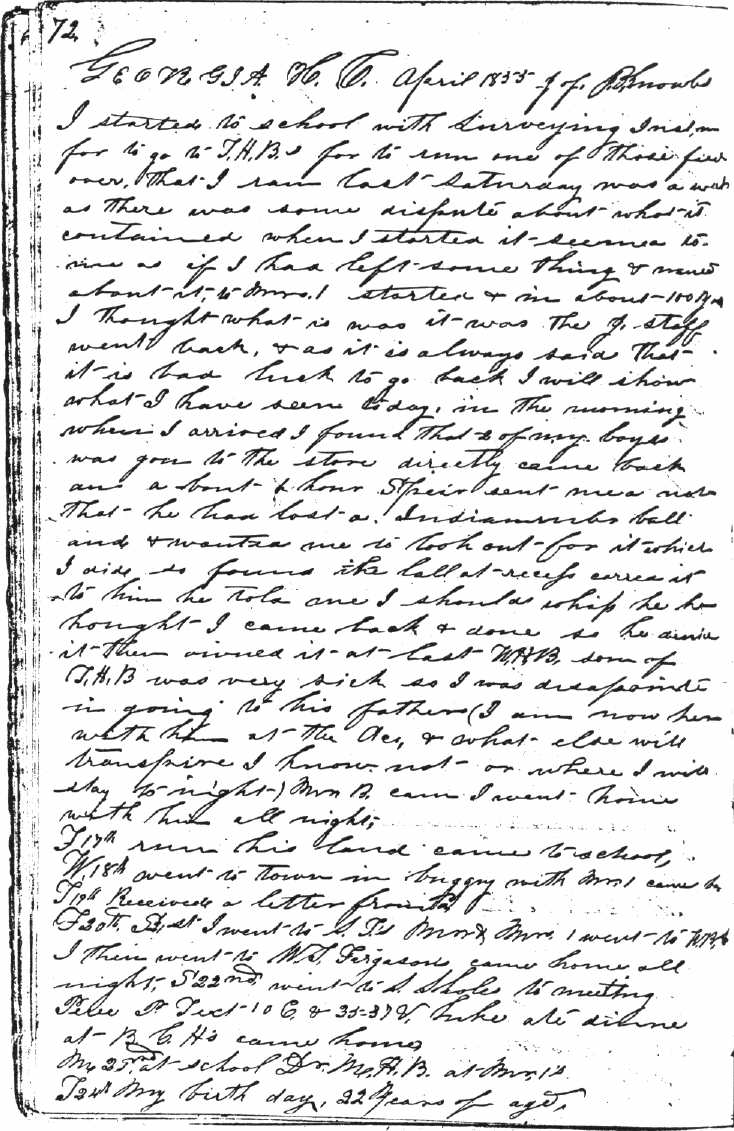 72
GEORGIA H. C. April 1855 J of P.B. Knowls
I started to school with Surveying Inst
for to go to T.H.B.s for to run one of those
over, that I ran last Saturday was a week
as there was some dispute about what it
contained when I started it seemed to
me as if I had left some thing &
about it, to Mrs. 1 started & in about 100 yds
I thought what is was it was the J. staff
went back, & as it is always said that
it is bad luck to go back I will show
what I have seen to day, in the morning
when I arrived I found that 2 of my boyes
was gon to the store directly came back
an a bout hour Speir sent me a note
that he had lost a. Indianrubr ball
and & wanted me to look out for it which
I did, so found the ball at recess carred it
to him he told me I should whip he he
thought I came back & done so he denid
it then owned it at last W.H.B. son of
T.H.B was very sick so I was disapointe
in going to his fathers (I am now her
with him at the Ac, & what else will
transpire I know not or where I will
stay to night) Mrs B. cam I went home
with him all night,
T 17th run his land came to school,
W. 18th went to town in buggy with Mrs 1 came
T 19th Received a letter from
F 20th I went to S. Ts Mrs 1 went to
I then went to W.S. Fergasons came home all
night, S 22nd went to S. Shole to meeting
Text 10 C. & 35-37 V, Luke ate dinne
at B C Hs came home
at school Dr. Mc H. B. at Mrs, 1s
T 24th My birth day, 22 Years of age,